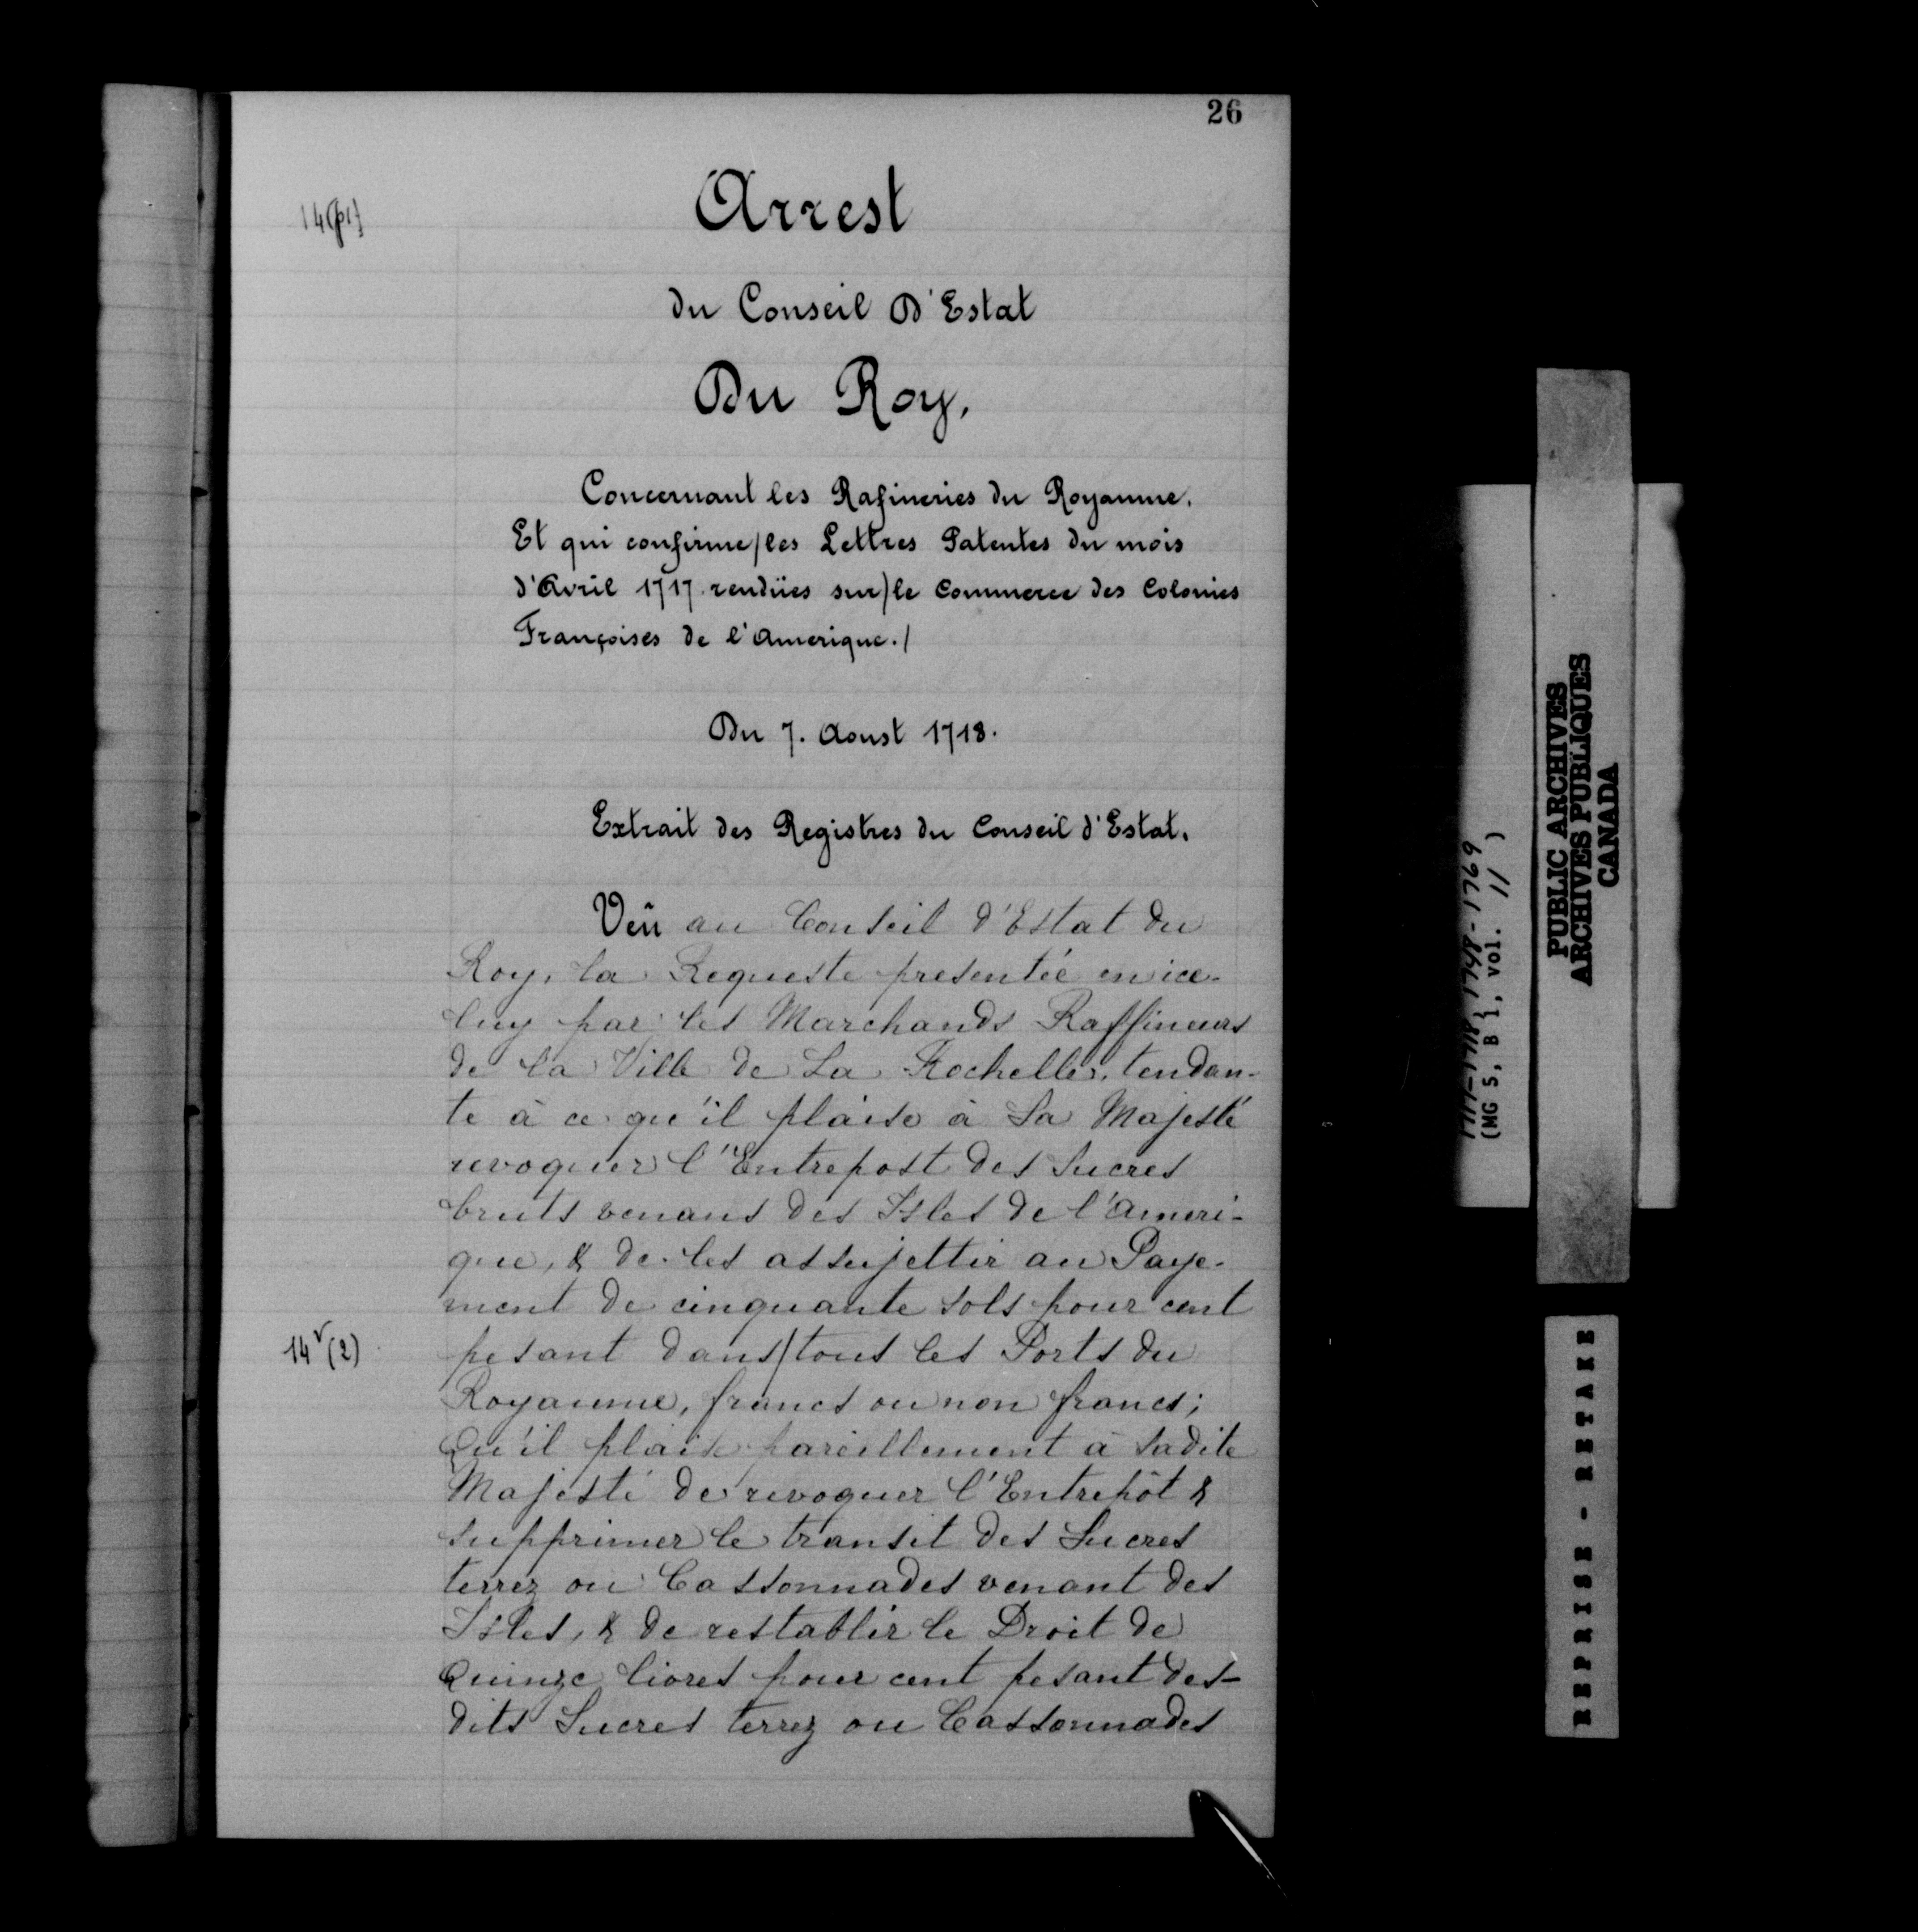 26
14(p1)
Arrest
du Conseil D'Estat
Du Roy,
Concernant les Rafineries du Royaume.
Et qui confirme/les Lettres Patentes du mois
d'Avril 1717. rendües sur/le Commerce des Colonies
Françoises de l'Amerique./
Du 7. Aoust 1718.
Extrait des Registres du Conseil d'Estat.
Veû au Conseil d'Estat du
Roy, la Requeste presentée en ice-
luy par les Marchands Raffineurs
de la Ville de La Rochelle, tendan-
te à ce qu'il plaise à Sa Majesté
revoquer l'Entrepost des Sucres
bruts venans des Isles de l'Ameri-
que, & de les assujettir au Paye-
ment de cinquante sols pour cent
14v (2)
pesant dans/tous les Ports du
Royaume, francs ou non francs;
Qu'il plaise pareillement à sadite
Majesté de revoquer l'Entrepôt &
supprimer le transit des Sucres
terrez ou Cassonnades venant des
Isles, & de restablir le Droit de
Quinze livres pour cent pesant des-
dits Sucres terrez ou Cassonnades
1711-1718, 1768-1769
(MG 5, B 1, vol. 11 )
PUBLIC ARCHIVES
ARCHIVES PUBLIQUES
CANADA
REPRISE - RETAKE